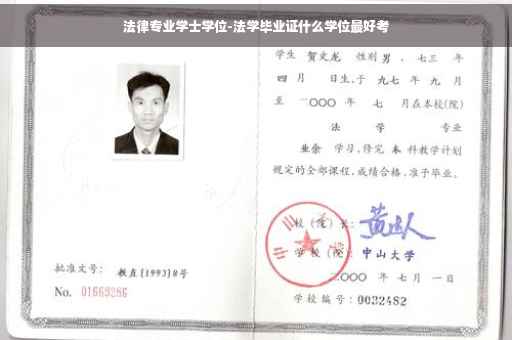 法律专业学士学位-法学毕业证什么学位最好考
学生 贺文龙 性别 男，七三 年
四 月 日生，于 九七 年 九 月
至 二〇〇〇 年 七 月在本校(院)
法 学 专业
业余 学习，修完 本 科教学计划
规定的全部课程，成绩合格，准予毕业。
校(院)长：
学校(院)：中山大学
二〇〇〇 年 七 月 一 日
学校编号：0032482
批准文号：教直[1993]8号
No. 01669286
中山大学